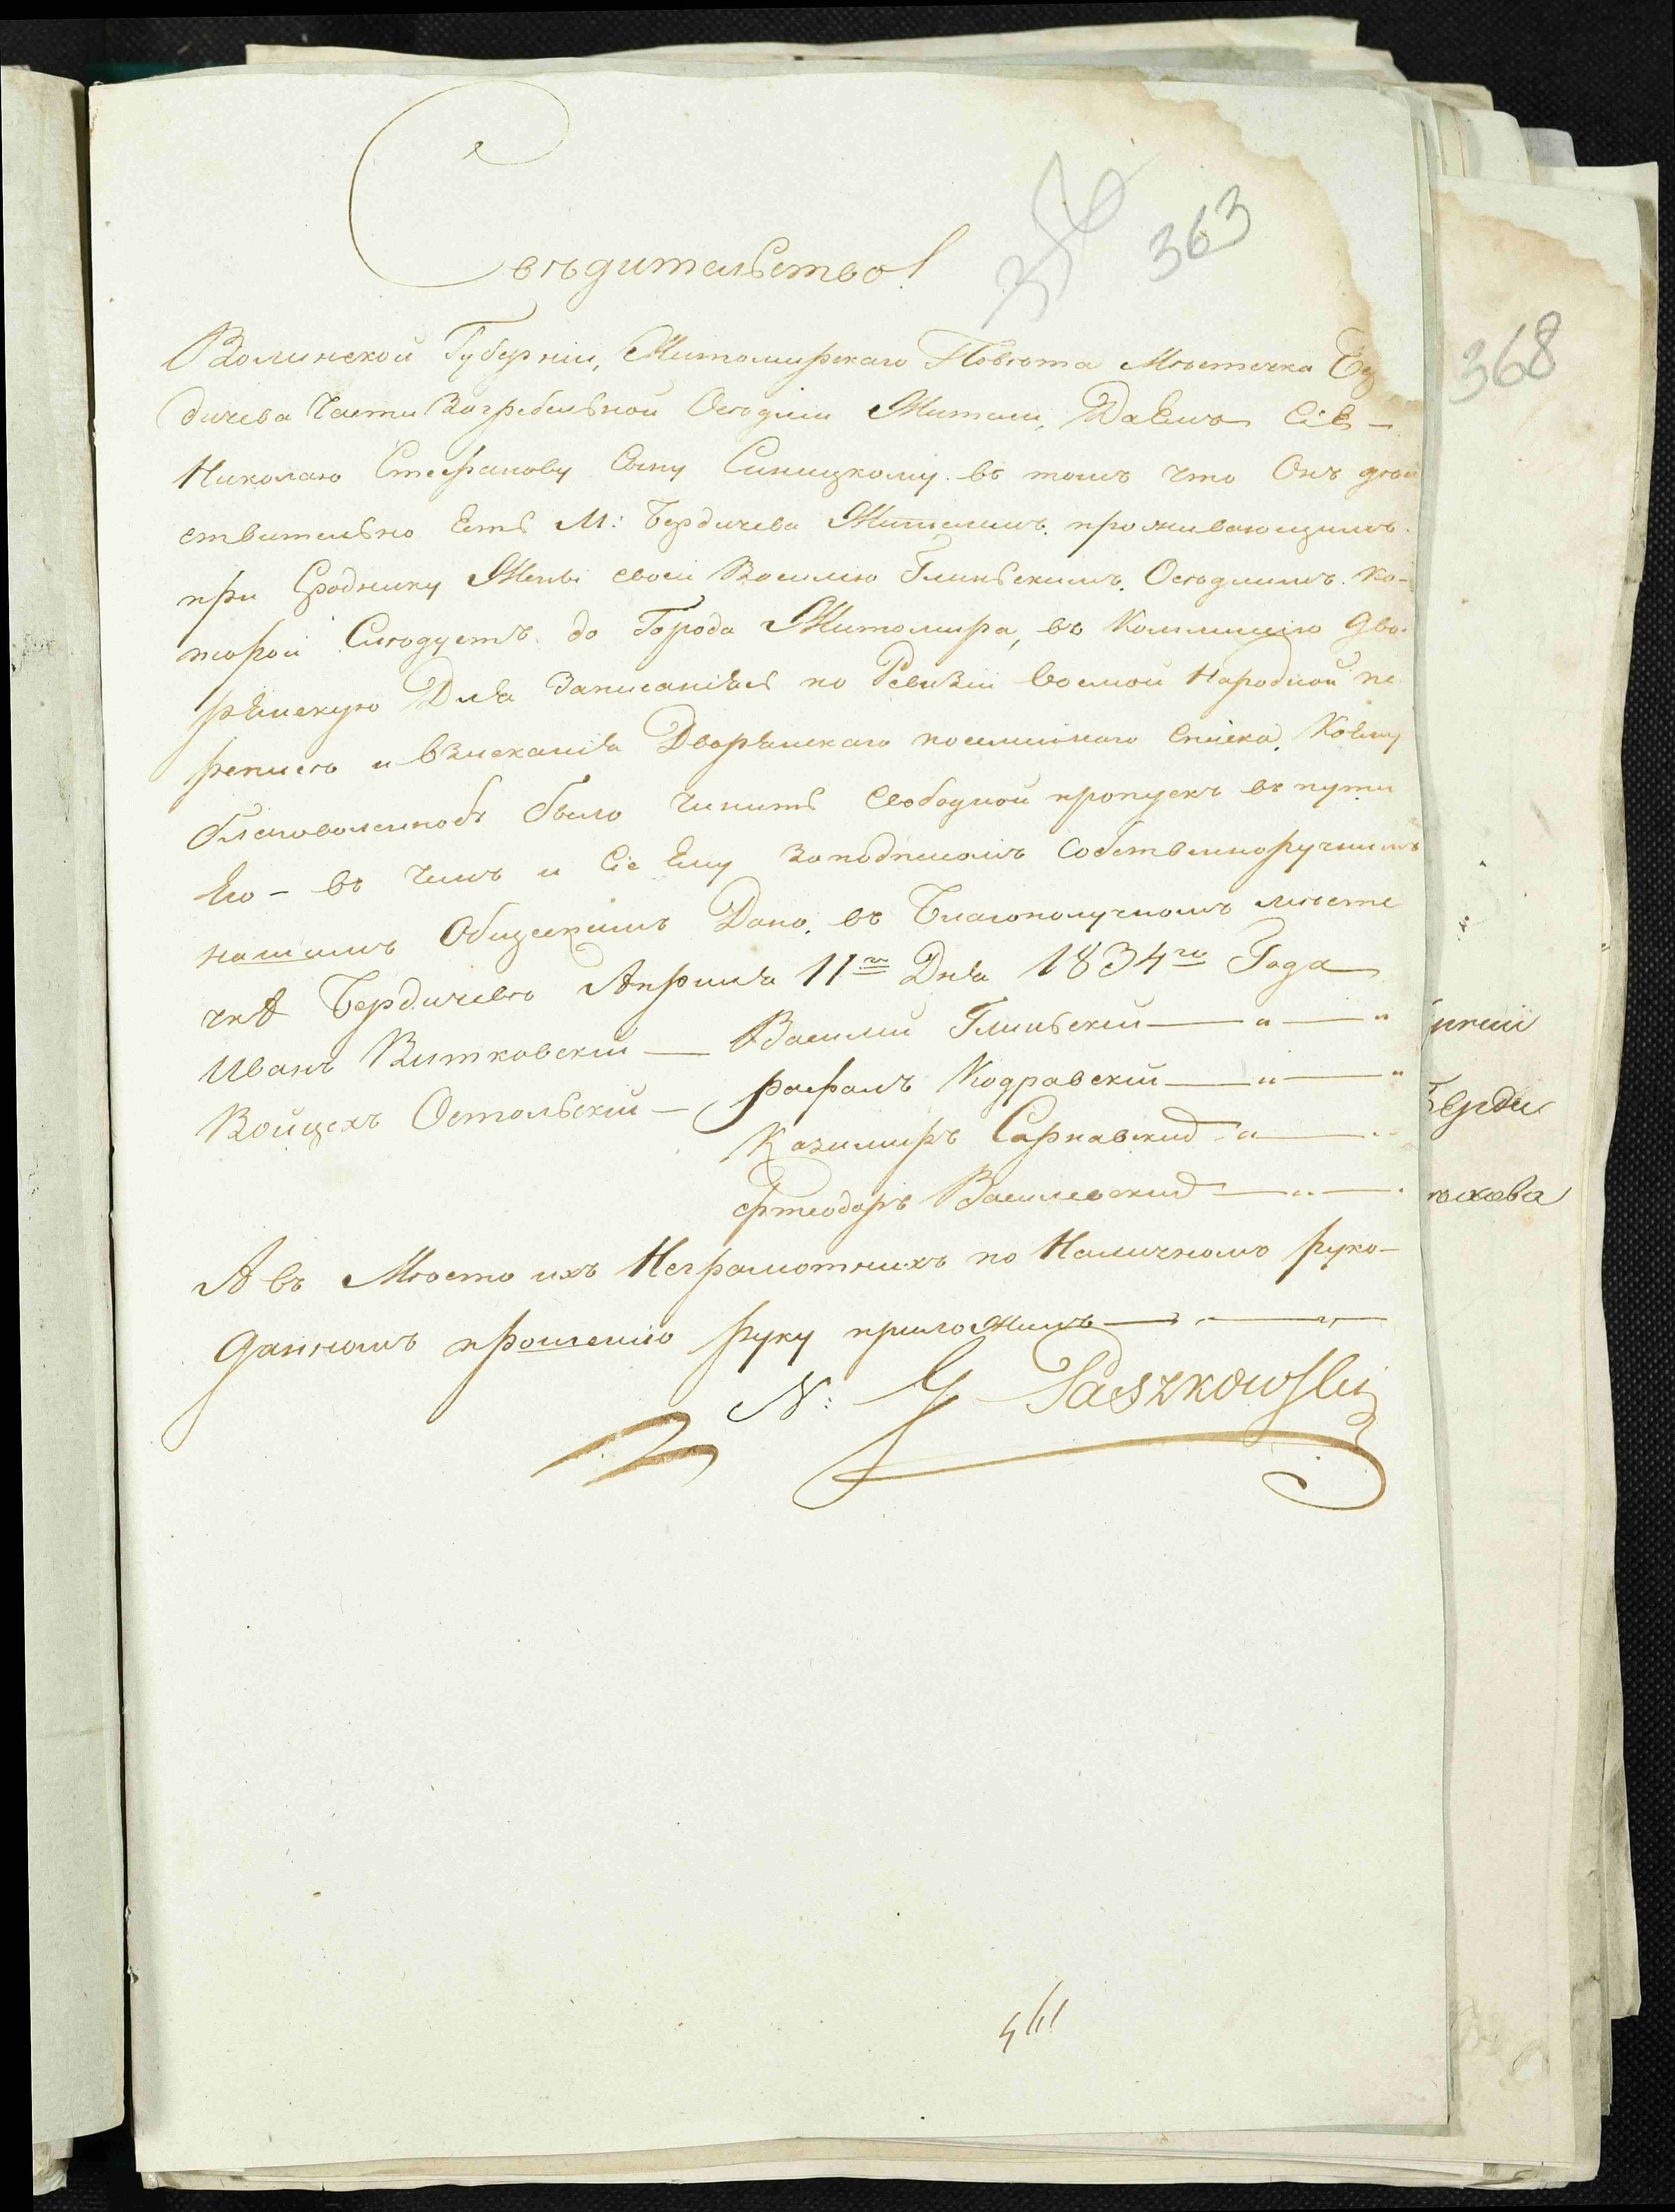 356
363
Свѣдительство!
Волинской Губерніи, Житомирскаго Повѣта Мѣстечка Бер
дичева Части Загребельной Осѣдлии Жители, Даемъ Сіе
Николаю Стефанову Сыну Синицкому въ томъ что Онъ дѣй
ствительно Есть М: Бердичева Жителемъ проживающимъ
при Сроднику Жены своей Василію Глинскимъ Осѣдлимъ. Ко-
торой Слѣдуетъ до Города Житомира, въ Коммисію Дво-
рянскую Для Записанія по Ревизіи Восмой Народной пе
реписѣ и Взисканія Дворянскаго посемейнаго списка, Коему
благоволенноб было Чинить Свободной пропускъ въ пути
Его - въ Чемъ и Сіе Ему Заподписомъ Собственноручнимъ
нашимъ Общескимъ Дано. въ Благополучномъ мѣсте
чкѣ Бердичевѣ Априля 11го Дня 1834го Года
Иванъ Витковскій — Василий Глинскій — " — "
Войцехъ Остольскій — Рафалъ Кодравскій — " — "
Казимиръ Сарнавский — " —
Фтеодоръ Василевский — " —
А въ Мѣсто ихъ Неграмотнихъ по Наличномъ руко-
даннемъ прошенію руку приложилъ
N: G Paszkowski
368
Берди